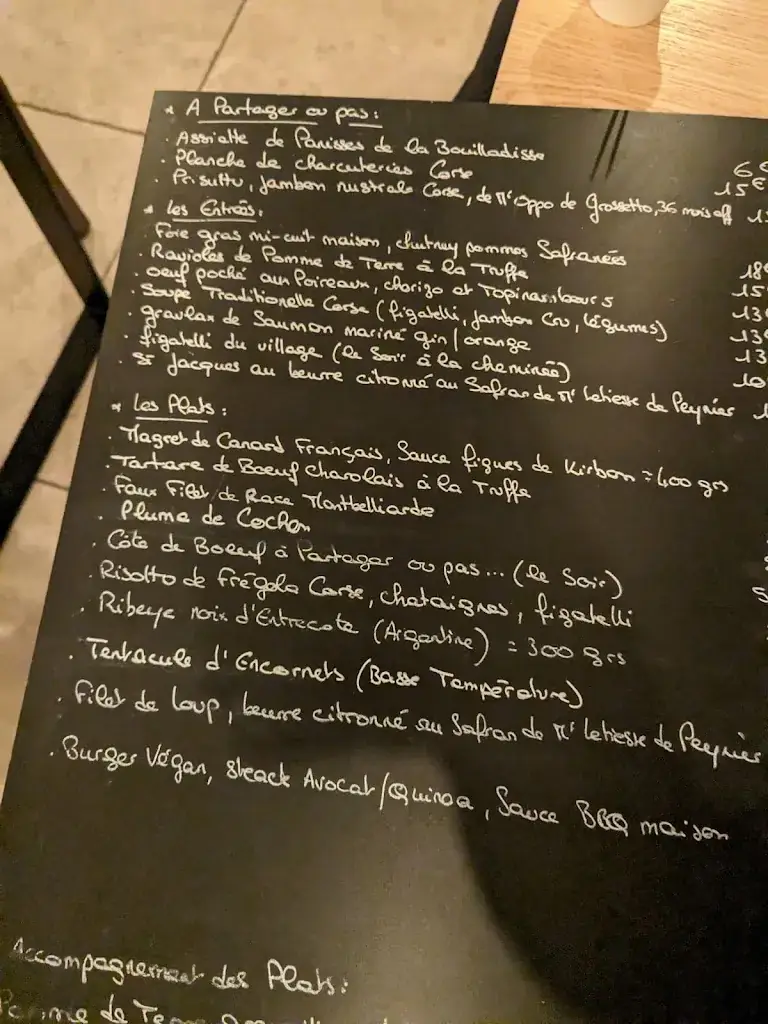 * A Partager ou pas :
. Assiette de Panisses de la Bouilladisse 6€
. Planche de charcuteries Corse 15€
. Prisuttu, Jambon rustrale Corse, de Mr oppo de Grossetto, 36 mois aff
* Les Entrées,
Foie gras mi-cuit maison, chutney pommes Safranées 18€
. Ravioles de Pomme de Terre à la Truffe 15
. oeuf poché aux Poireaux, chorizo et Topinambours 13
. Soupe Traditionelle Corse (figatelli, Jambon Cru, légumes) 13
. gravlax de Saumon mariné gin/orange 13
. figatelli du village (le Soir à la cheminée) 10
. St Jacques au beurre citronné au Safran de Mr Letiesse de Peynier
* Les Plats :
. Magret de Canard Français, Sauce figues de Kirbon = 400 grs
. Tartare de Boeuf Charolais à la Truffe
. Faux Filet de Race Montbelliarde
. Plume de Cochon
. Côte de Boeuf à Partager ou pas... (le Soir)
. Risolto de Frégola Corse, chataignes, figatelli
. Ribeye noix d'Entrecote (Argentine) = 300 grs
. Tentacule d'Encornets (Basse Température)
. Filet de Loup, beurre citronné au Safran de Mr Letiesse de Peynier
. Burger Végan, Steack Avocat/Quinoa, Sauce BBQ maison
Accompagnement des Plats :
Pomme de Terre